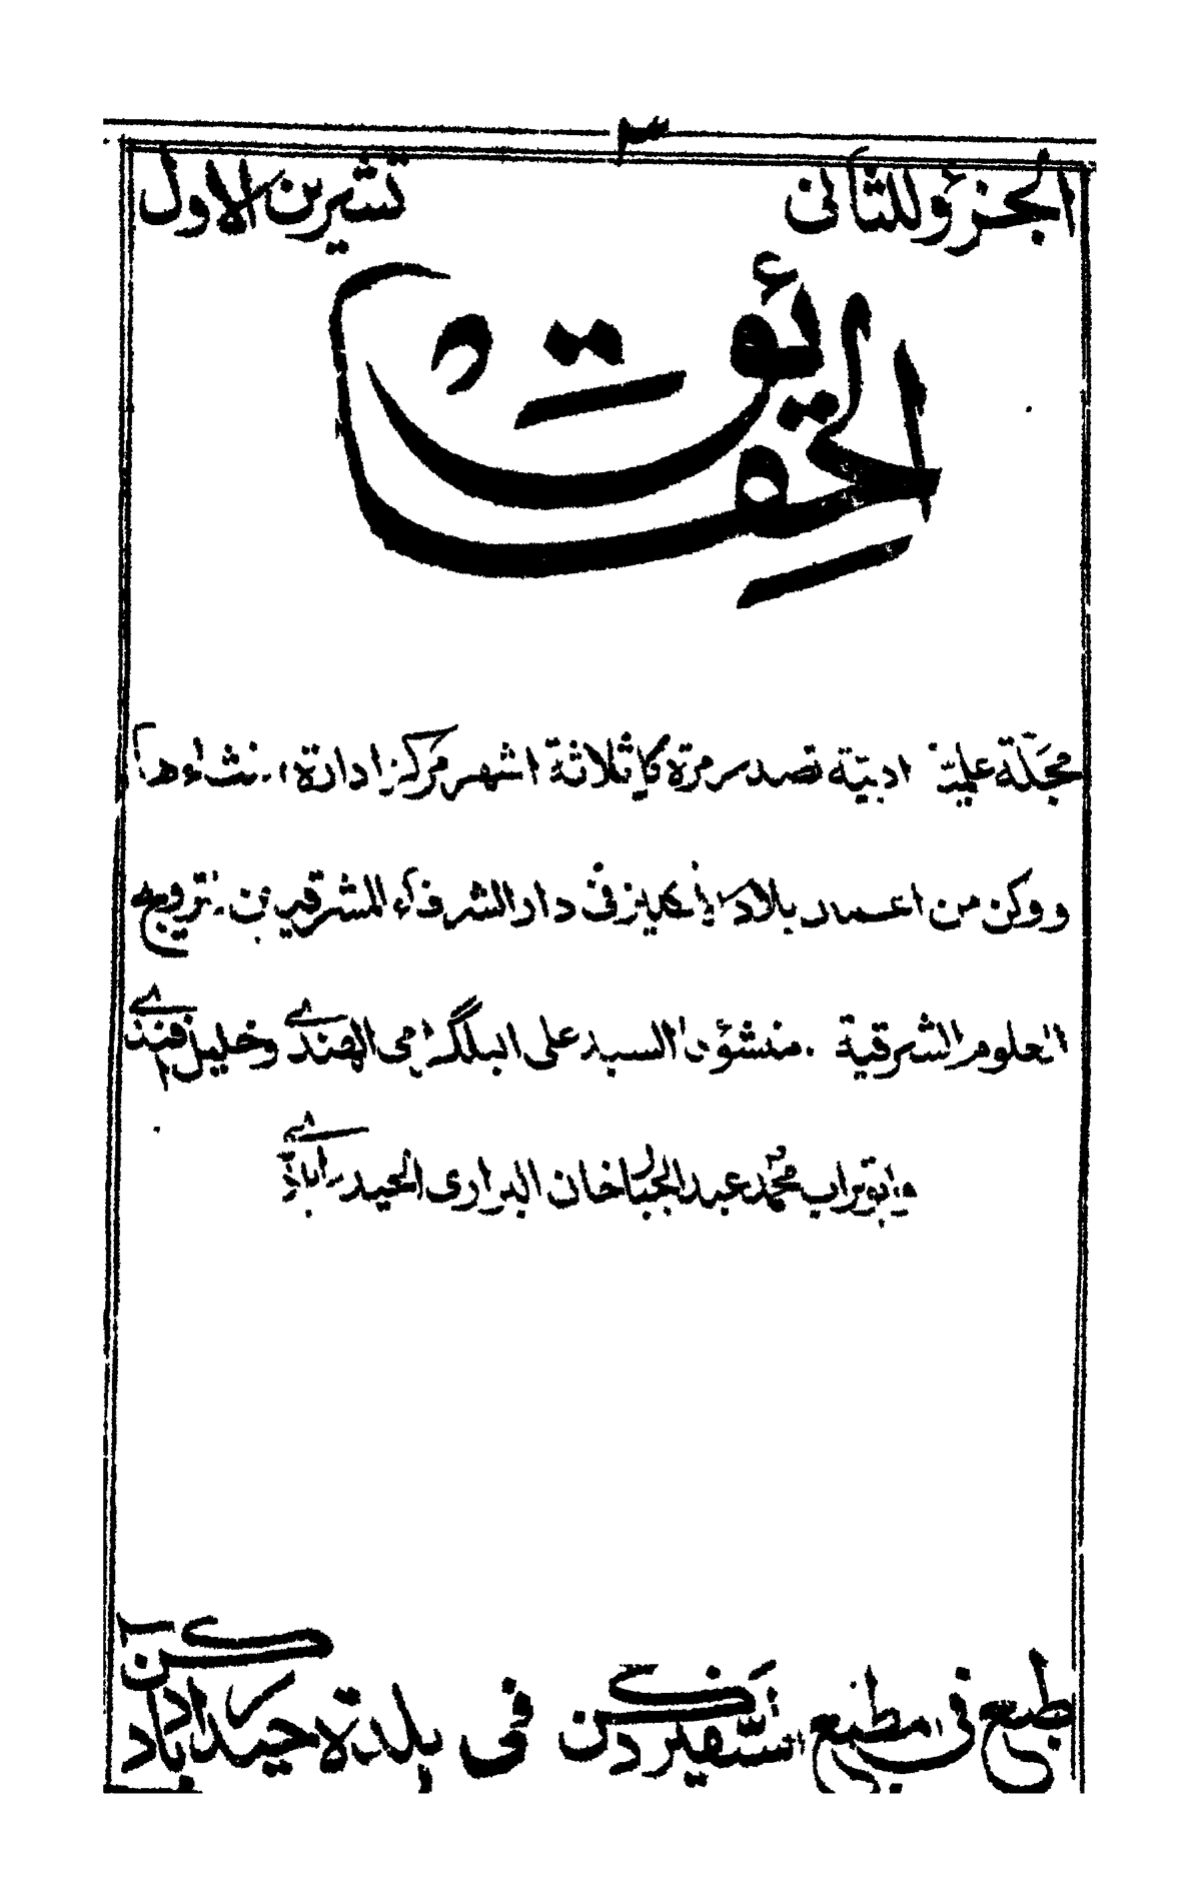 ٣
الجزؤ للثانى
تشرين الاول
الحقائق
مجلة علمية ادبية تصدر مرة كل ثلاثة اشهر مركز ادارة
ووكن من اعمال بلاد فى دار الشرفاء المشرقيين ترويج
العلوم الشرقية . منشؤها السيد على البلگرامى الهندى وخليل افندى
وابو تراب محمد عبد الجبار خان البرارى الحيدرآبادى
طبع فى مطبع سفير دكن فى بلدة حيدراباد دكن